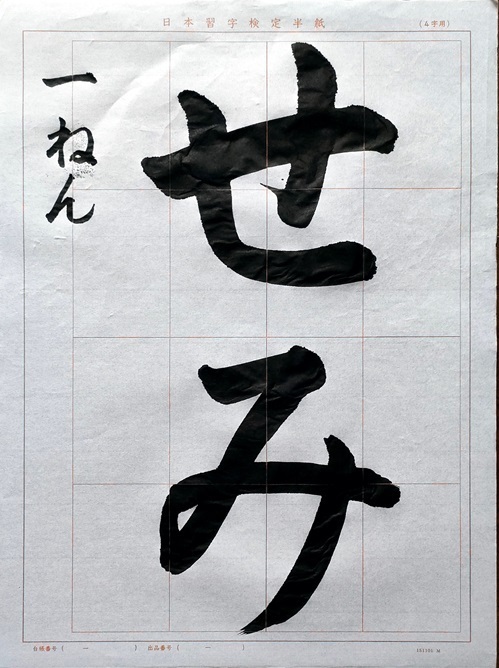 日本習字検定半紙
(4字用)
せみ
一ねん
台帳番号( ー ) 出品番号( ー )